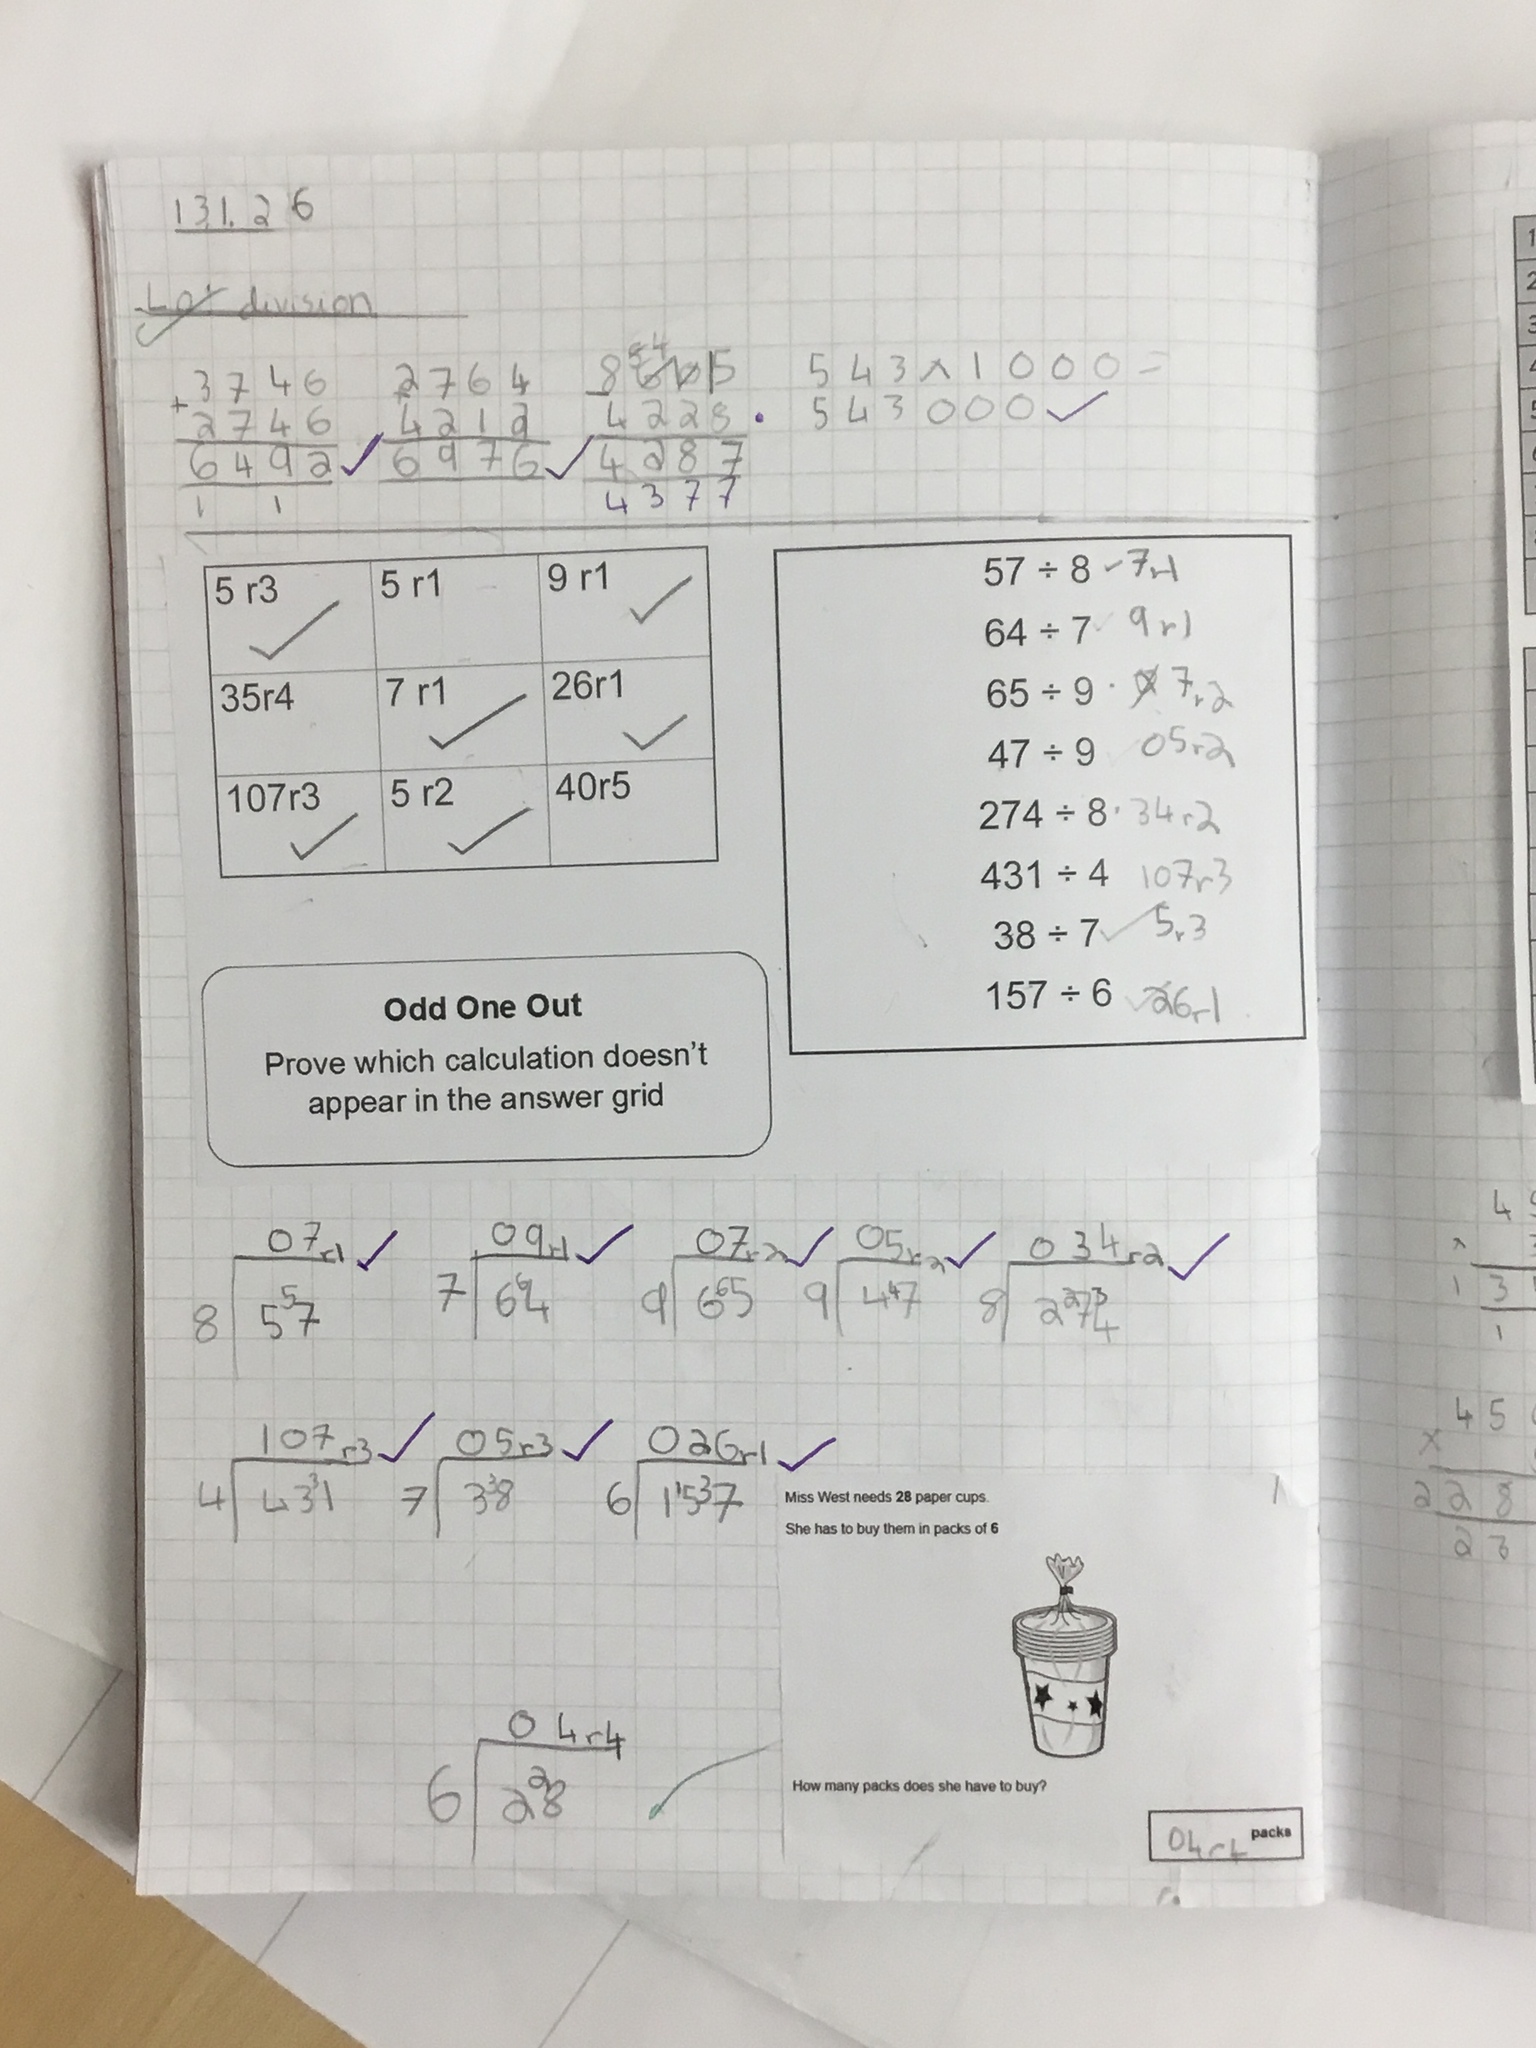 13.1.26
Lo: division
3746
+2746
6492
1 1
2764
4212
6976
- 4228
4287
4377
543 × 1000 =
543000
5 r3 5 r1 9 r1
35r4 7 r1 26r1
107r3 5 r2 40r5
57 ÷ 8 7r1
64 ÷ 7 9r1
65 ÷ 9 7r2
47 ÷ 9 05r2
274 ÷ 8 34r2
431 ÷ 4 107r3
38 ÷ 7 5r3
157 ÷ 6 26r1
Odd One Out
Prove which calculation doesn't
appear in the answer grid
07r1 09r1 07r2 05r2 034r2
8 5⁵7 7 6⁶4 9 6⁶5 9 4⁴7 8 2²7³4
107r3 05r3 026r1
4 43³1 7 3³8 6 1¹5³7
Miss West needs 28 paper cups.
She has to buy them in packs of 6
04r4
6 2²8
How many packs does she have to buy?
04r4 packs
1
2
3
4
5
4
×
1 3
1
4 5
×
2 2 8
2 3